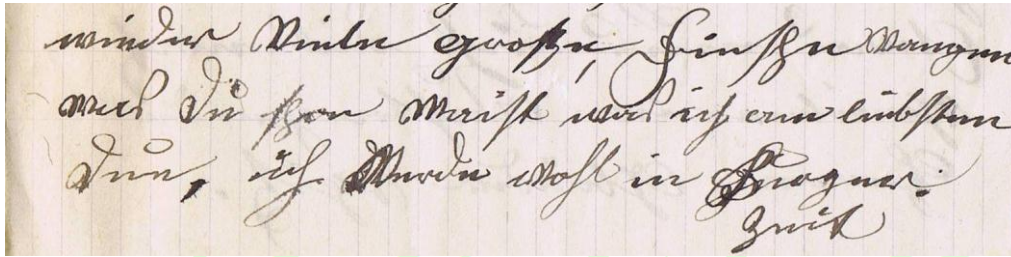 wieder Viele große, Fische Wangen
was Du schon Weist was ich am liebsten
Due, ich Werde wohl in Kurzer
Zeit